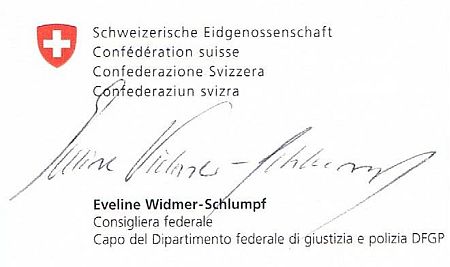 Schweizerische Eidgenossenschaft
Confédération suisse
Confederazione Svizzera
Confederaziun svizra
Eveline Widmer-Schlumpf
Eveline Widmer-Schlumpf
Consigliera federale
Capo del Dipartimento federale di giustizia e polizia DFGP